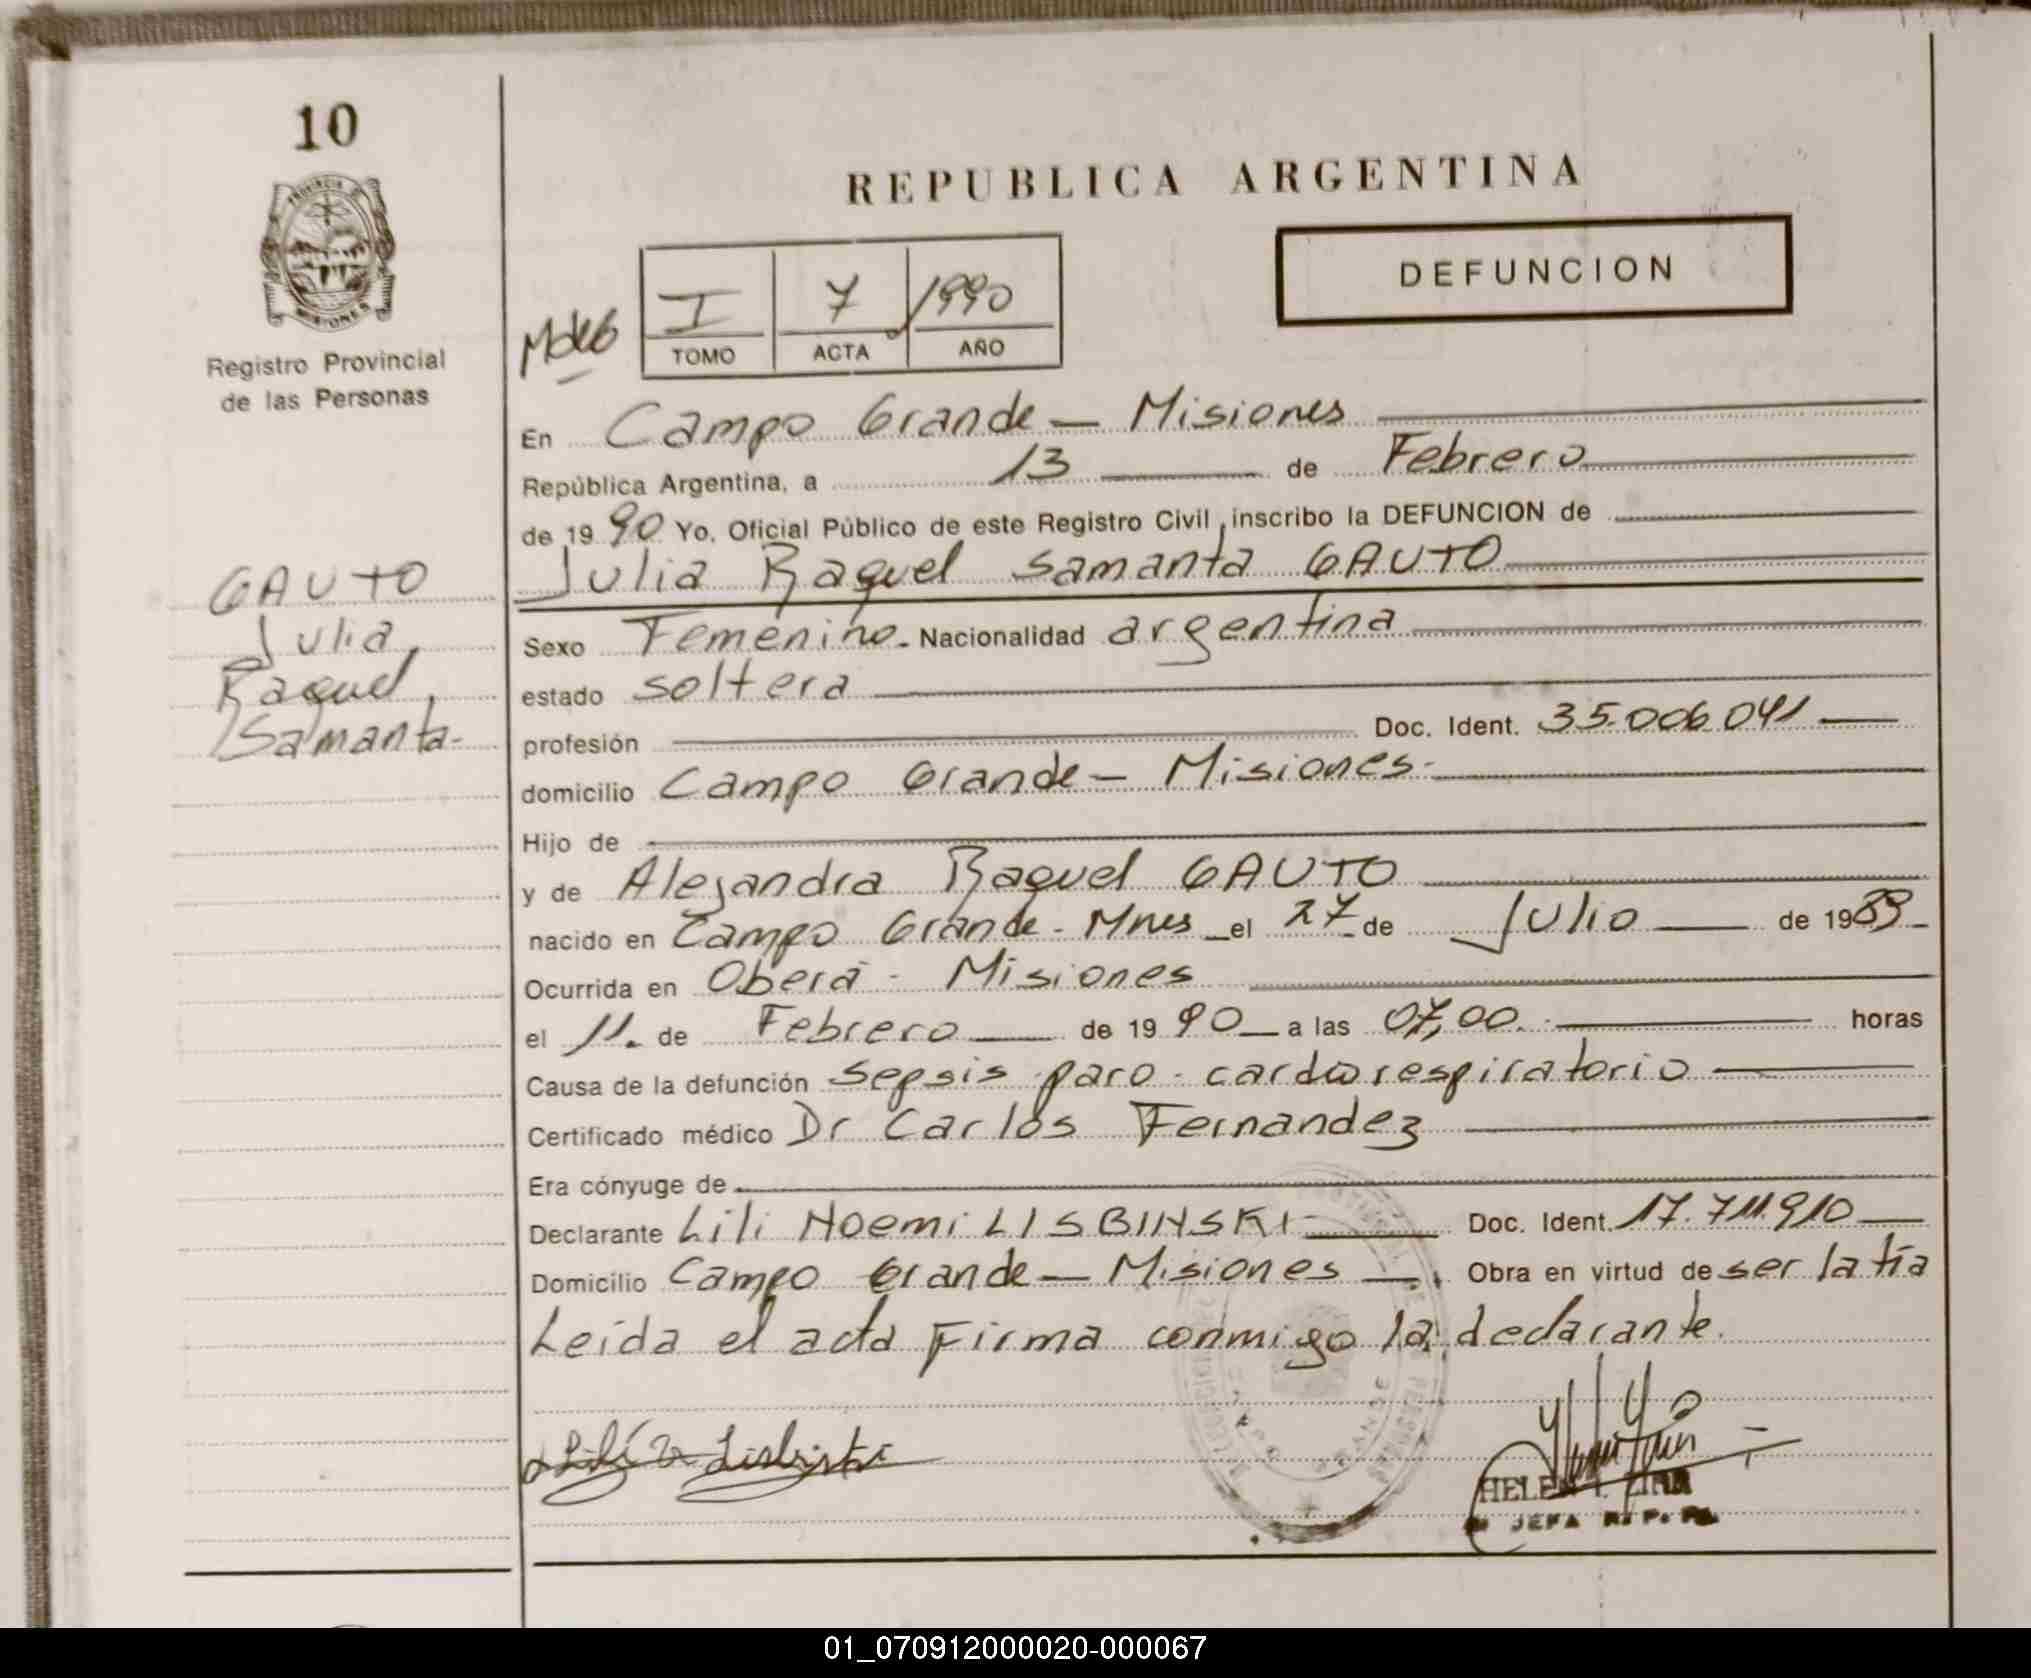 10
PROVINCIA D
MISIONES
Registro Provincial
de las Personas
REPUBLICA ARGENTINA
DEFUNCION
I 7 1990
TOMO ACTA AÑO
En Campo Grande — Misiones
República Argentina, a 13 de Febrero
de 1990 Yo, Oficial Público de este Registro Civil, inscribo la DEFUNCION de
Julia Raquel Samanta GAUTO
GAUTO
Julia
Raquel
Samanta-
Sexo Femenino- Nacionalidad argentina
estado soltera
profesión Doc. Ident. 35.006.041
domicilio Campo Grande — Misiones-
Hijo de
y de Alejandra Raquel GAUTO
nacido en Campo Grande - Mnes el 27 de Julio de 1989
Ocurrida en Oberá - Misiones
el 11. de Febrero de 1990 a las 07,00. horas
Causa de la defunción sepsis paro - cardiorespiratorio
Certificado médico Dr Carlos Fernandez
Era cónyuge de
Declarante Lili Noemi LISBINSKI Doc. Ident. 17.711.910
Domicilio Campo Grande — Misiones Obra en virtud de ser la tía
Leída el acta Firma conmigo la declarante.
JEFA R. P. P.
01_070912000020-000067